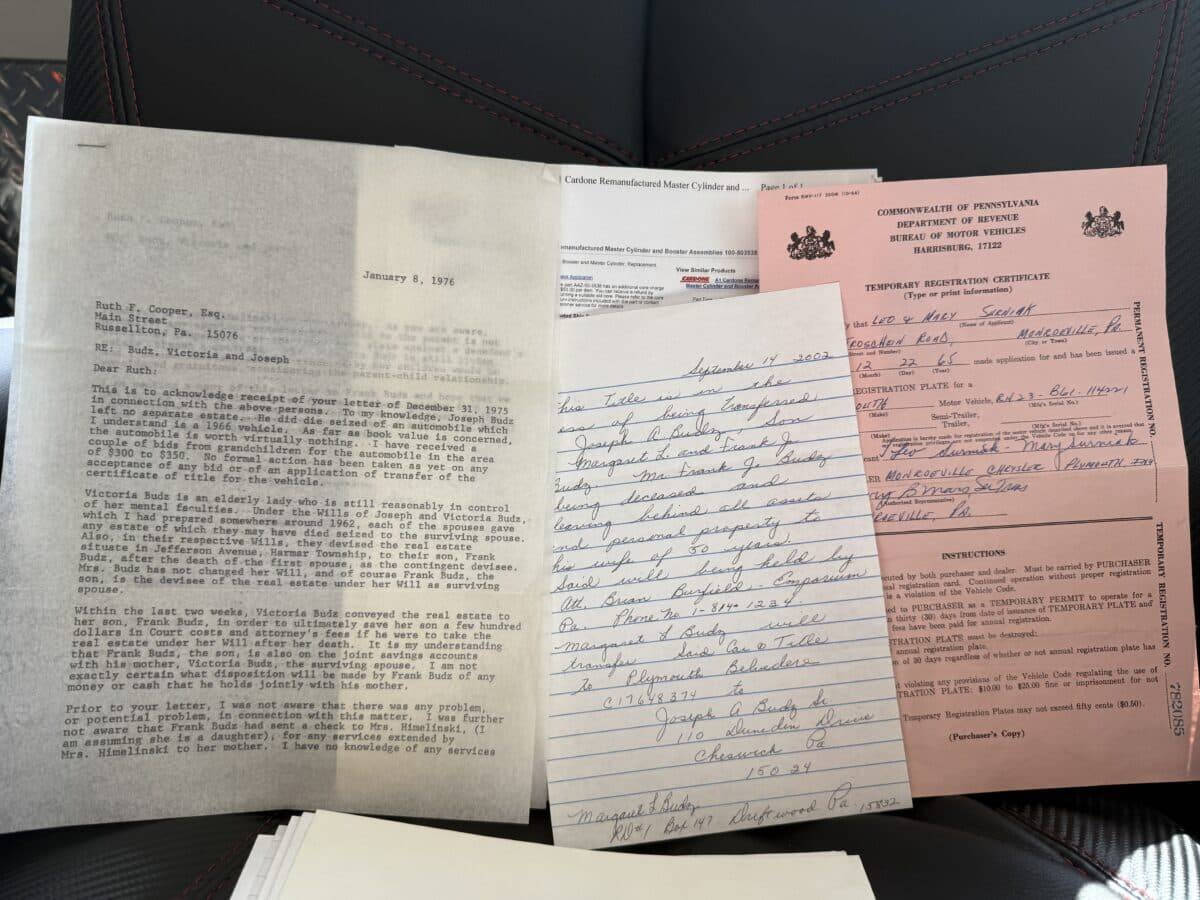 January 8, 1976
Ruth F. Cooper, Esq.
Main Street
Russellton, Pa. 15076
RE: Budz, Victoria and Joseph
parent-child relationship.
Dear Ruth:
This is to acknowledge receipt of your letter of December 31, 1975
in connection with the above persons. To my knowledge, Joseph Budz
left no separate estate. He did die seized of an automobile which
I understand is a 1966 vehicle. As far as book value is concerned,
the automobile is worth virtually nothing. I have received a
couple of bids from grandchildren for the automobile in the area
of $300 to $350. No formal action has been taken as yet on any
acceptance of any bid or of an application of transfer of the
certificate of title for the vehicle.
Victoria Budz is an elderly lady who is still reasonably in control
of her mental faculties. Under the Wills of Joseph and Victoria Budz,
which I had prepared somewhere around 1962, each of the spouses gave
any estate of which they may have died seized to the surviving spouse.
Also, in their respective Wills, they devised the real estate
situate in Jefferson Avenue, Harmar Township, to their son, Frank
Budz, after the death of the first spouse, as the contingent devisee.
Mrs. Budz has not changed her Will, and of course Frank Budz, the
son, is the devisee of the real estate under her Will as surviving
spouse.
Within the last two weeks, Victoria Budz conveyed the real estate to
her son, Frank Budz, in order to ultimately save her son a few hundred
dollars in Court costs and attorney's fees if he were to take the
real estate under her Will after her death. It is my understanding
that Frank Budz, the son, is also on the joint savings accounts
with his mother, Victoria Budz, the surviving spouse. I am not
exactly certain what disposition will be made by Frank Budz of any
money or cash that he holds jointly with his mother.
Prior to your letter, I was not aware that there was any problem,
or potential problem, in connection with this matter. I was further
not aware that Frank Budz had sent a check to Mrs. Himelinski, (I
am assuming she is a daughter), for any services extended by
Mrs. Himelinski to her mother. I have no knowledge of any services
Cardone Remanufactured Master Cylinder and ... Page 1 of 1
manufactured Master Cylinder and Booster Assemblies 100-503538
Booster and Master Cylinder, Replacement
View Similar Products
CARDONE A1 Cardone
Master Cylinder and Booster
September 14 2002
his Title is in the
ess of being transferred
Joseph A Budz - Son
Margaret L. and Frank J.
Budz Mr. Frank J. Budz
being deceased and
leaving behind all assets
and personal property to
his wife of 50 years.
Said will being held by
Att, Brian Burfield - Emporium
Pa. Phone No 1-814-1234
Margaret L Budz will
transfer Said Car & Title
To Plymouth Belvedere
C17648374 to
Joseph A Budz Sr
110 Dunedin Drive
Cheswick Pa
15024
Margaret L Budz
RD#1 Box 147 Driftwood Pa 15832
COMMONWEALTH OF PENNSYLVANIA
DEPARTMENT OF REVENUE
BUREAU OF MOTOR VEHICLES
HARRISBURG, 17122
TEMPORARY REGISTRATION CERTIFICATE
(Type or print information)
y that LEO & MARY SURNIAK
(Name of Applicant)
ROAD, MONROEVILLE, PA.
(Street and Number) (City or Town)
12 22 65 made application for and has been issued a
(Month) (Day) (Year)
REGISTRATION PLATE for a
OUTH Motor Vehicle, RH23-B61-114221
(Make) (Mfg's Serial No.)
Semi-Trailer,
Trailer,
(Make) (Mfg's Serial No.)
Leo Surniak - Mary Surniak
ER MONROEVILLE CHRYSLER PLYMOUTH
(Authorized Representative)
ROEVILLE, PA.
INSTRUCTIONS
cuted by both purchaser and dealer. Must be carried by PURCHASER
ual registration card. Continued operation without proper registration
is a violation of the Vehicle Code.
ed to PURCHASER as a TEMPORARY PERMIT to operate for a
thirty (30) days from date of issuance of TEMPORARY PLATE and
fees have been paid for annual registration.
TRATION PLATE must be destroyed:
annual registration plate.
of 30 days regardless of whether or not annual registration plate has
violating any provisions of the Vehicle Code regulating the use of
TRATION PLATE: $10.00 to $25.00 fine or imprisonment for not
Temporary Registration Plates may not exceed fifty cents ($0.50).
(Purchaser's Copy)
PERMANENT REGISTRATION NO.
TEMPORARY REGISTRATION NO.
782085